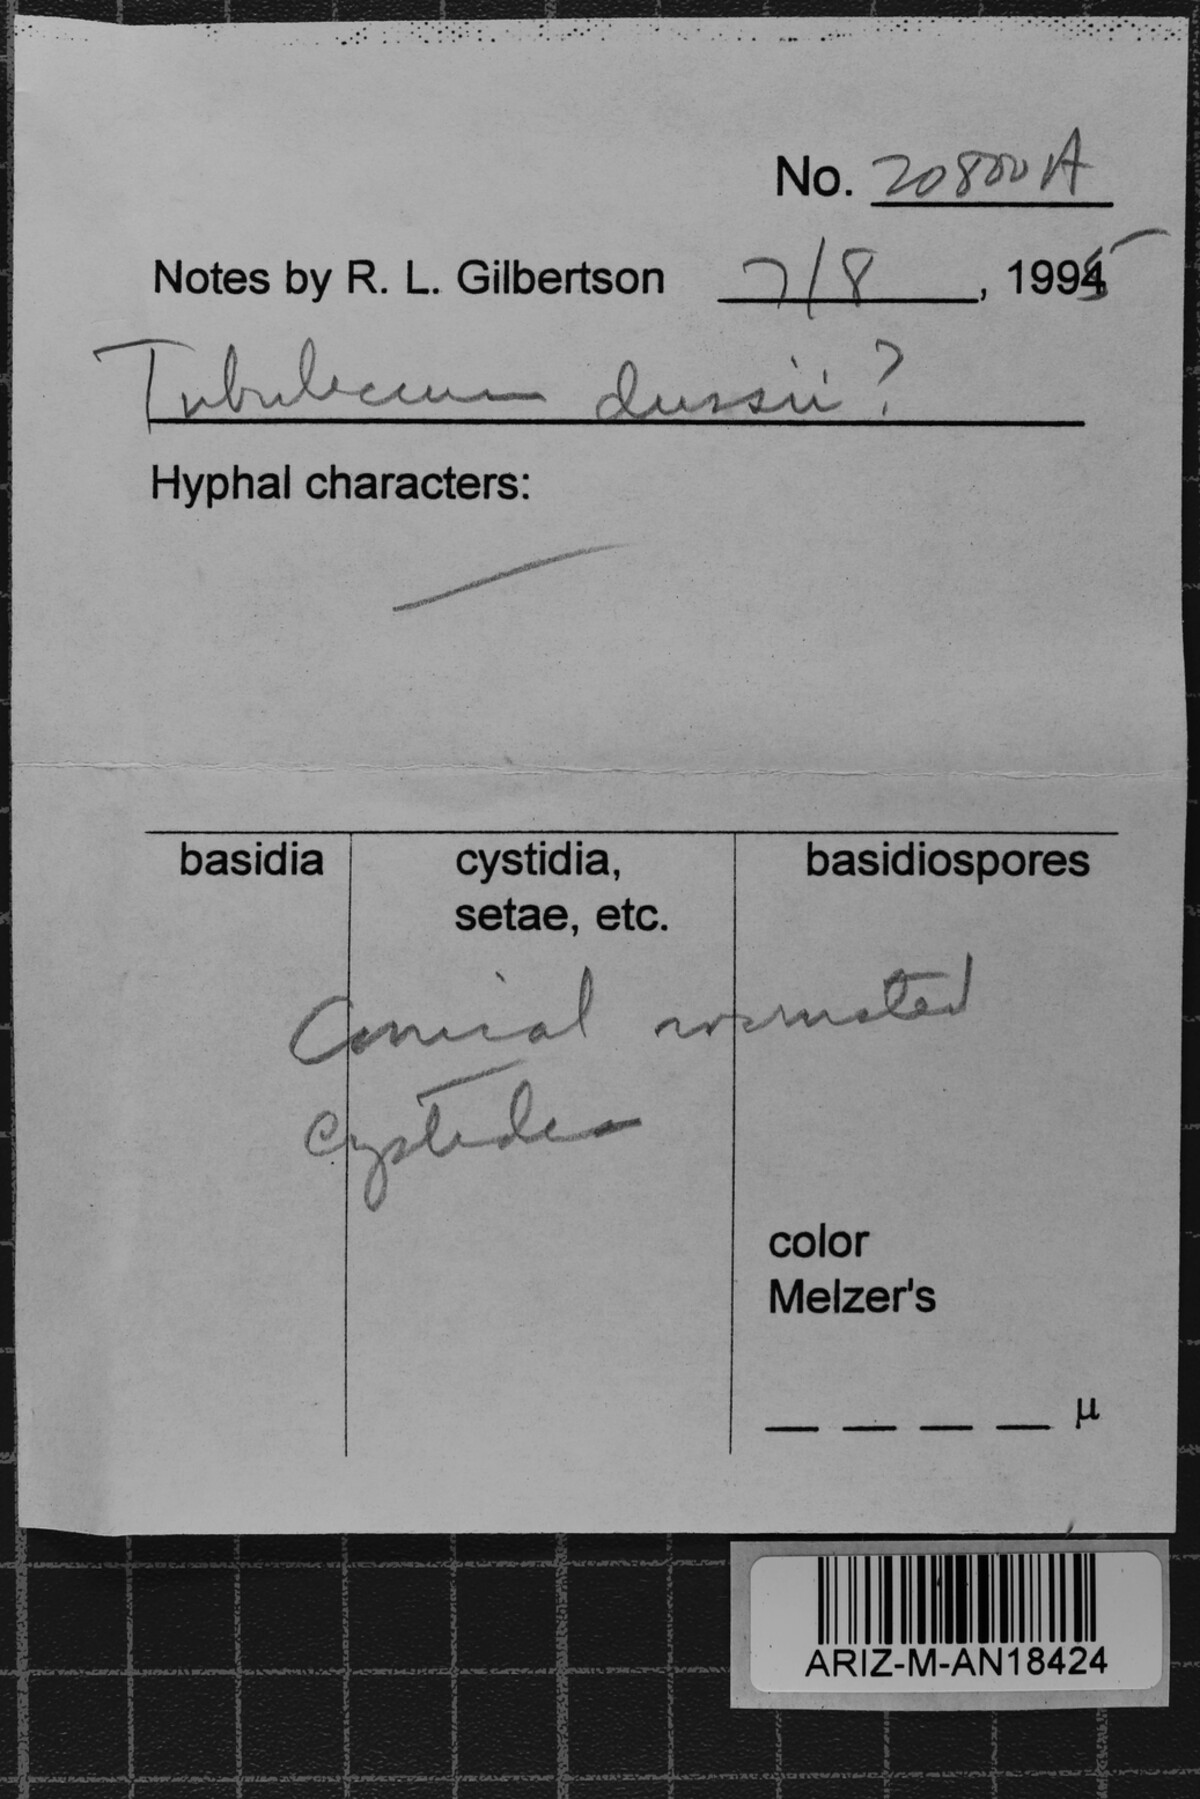 No. 20800A
Notes by R. L. Gilbertson 7/8, 1995
Tubulicium dussii?
Hyphal characters:
basidia
cystidia,
setae, etc.
basidiospores
Conical
cystidia
color
Melzer's
_ _ _ _ µ
ARIZ-M-AN18424